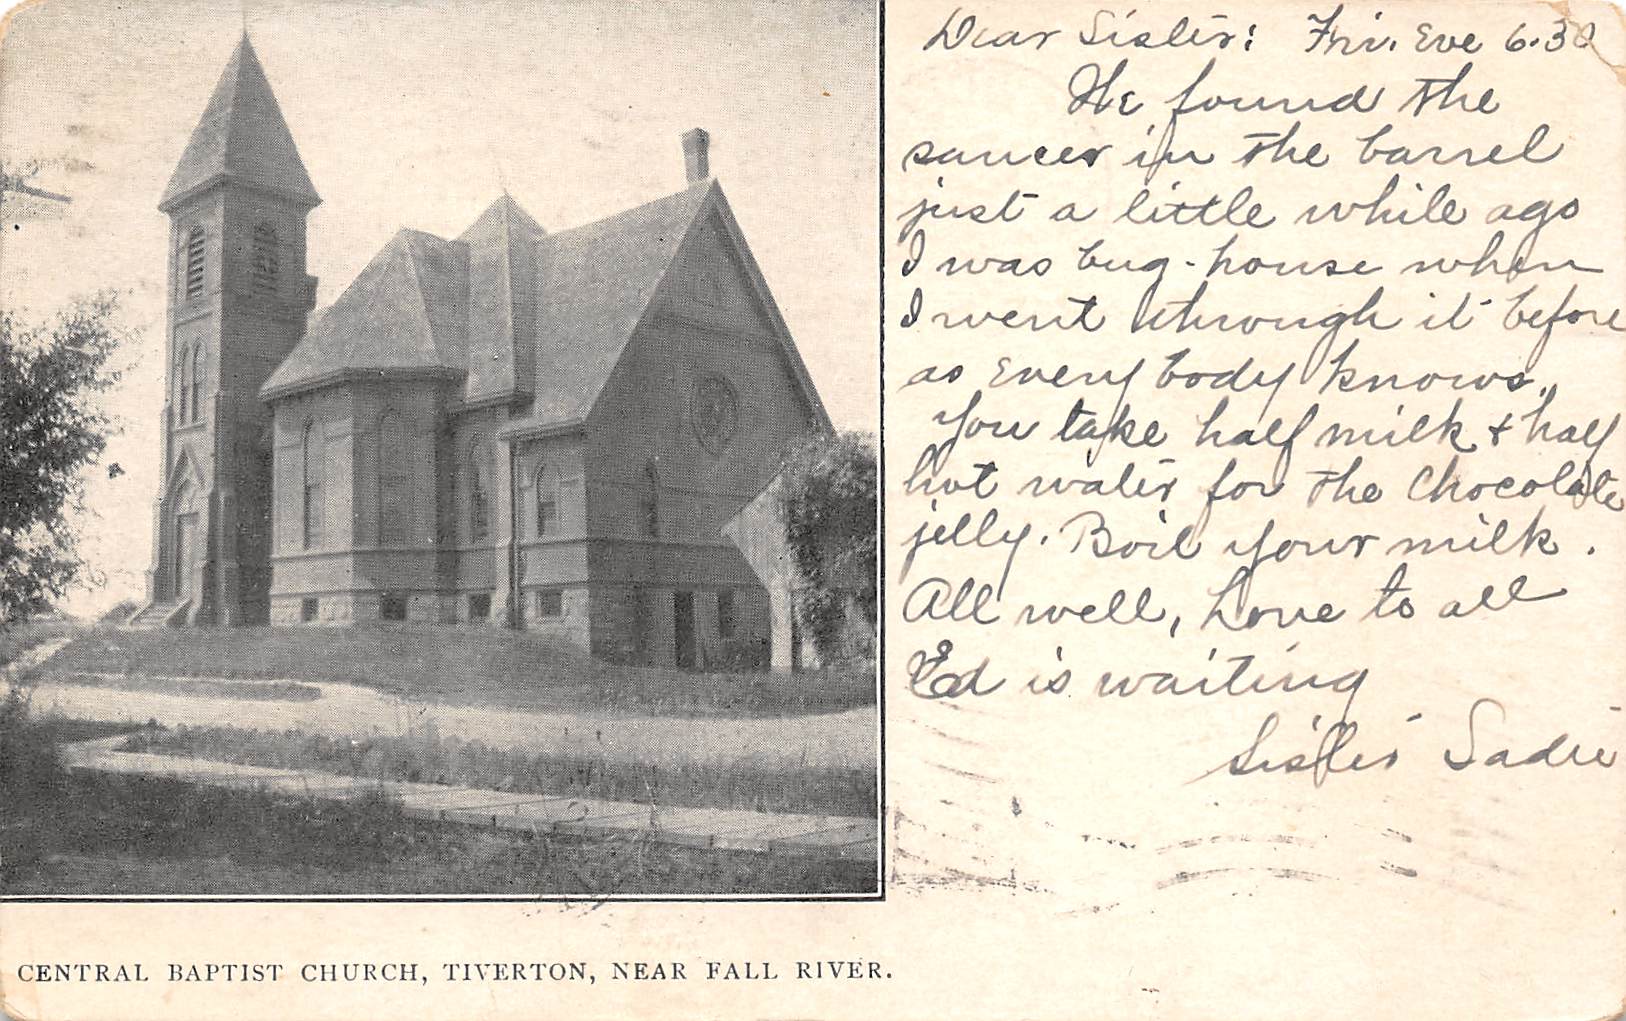 Dear Sister: Fri. Eve 6.30
We found the
saucer in the barrel
just a little while ago
I was bug-house when
I went through it before
as every body knows.
You take half milk & half
hot water for the Chocolate
jelly. Boil your milk.
All well, Love to all
Ed is waiting
Sister Sadie
CENTRAL BAPTIST CHURCH, TIVERTON, NEAR FALL RIVER.